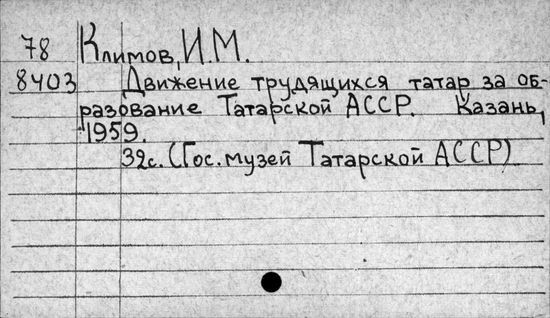 78 Климов, И.М.
8403 Движение трудящихся татар за об-
разование Татарской АССР. Казань,
1959.
32с. (Гос. музей Татарской АССР)